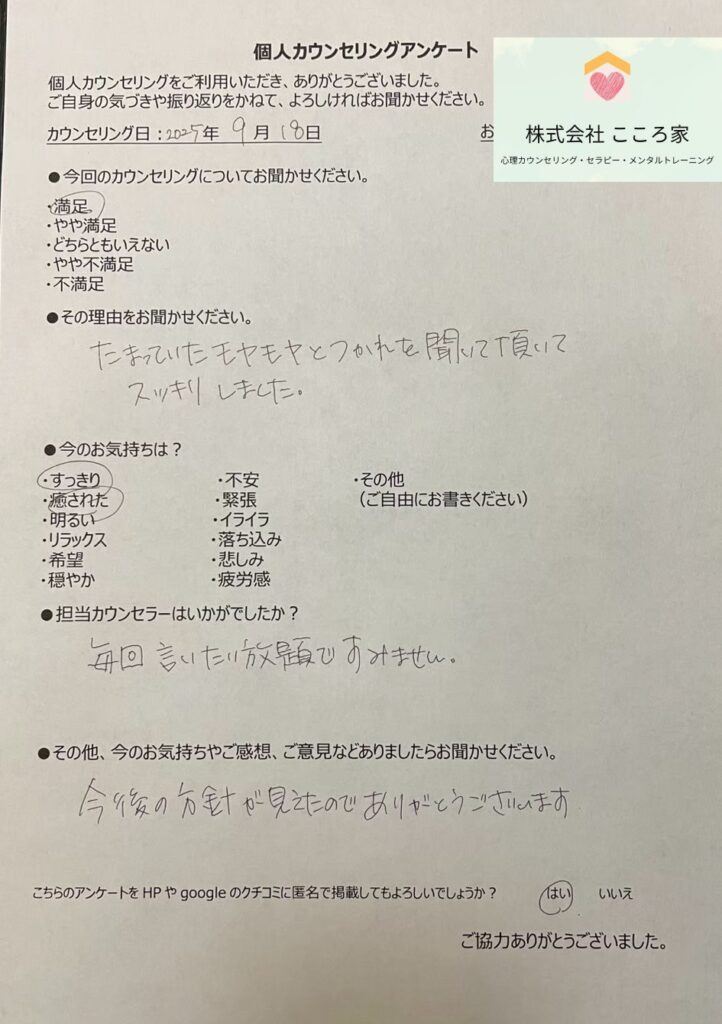 個人カウンセリングアンケート
個人カウンセリングをご利用いただき、ありがとうございました。
ご自身の気づきや振り返りをかねて、よろしければお聞かせください。
カウンセリング日：2025年 9月 18日
お
株式会社 こころ家
心理カウンセリング・セラピー・メンタルトレーニング
●今回のカウンセリングについてお聞かせください。
・満足
・やや満足
・どちらともいえない
・やや不満足
・不満足
●その理由をお聞かせください。
たまっていたモヤモヤとつかれを聞いて頂いて
スッキリしました。
●今のお気持ちは？
・すっきり ・不安 ・その他
・癒された ・緊張 （ご自由にお書きください）
・明るい ・イライラ
・リラックス ・落ち込み
・希望 ・悲しみ
・穏やか ・疲労感
●担当カウンセラーはいかがでしたか？
毎回言いたい放題ですみません。
●その他、今のお気持ちやご感想、ご意見などありましたらお聞かせください。
今後の方針が見えたのでありがとうございます
こちらのアンケートをHPやgoogleのクチコミに匿名で掲載してもよろしいでしょうか？ はい いいえ
ご協力ありがとうございました。